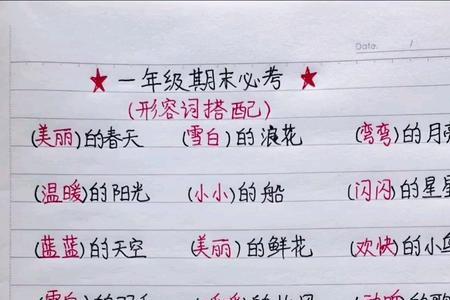 Date. /
★一年级期末必考★
(形容词搭配)
(美丽)的春天 (雪白)的浪花 (弯弯)的月亮
(温暖)的阳光 (小小)的船 (闪闪)的星星
(蓝蓝)的天空 (美丽)的鲜花 (欢快)的小